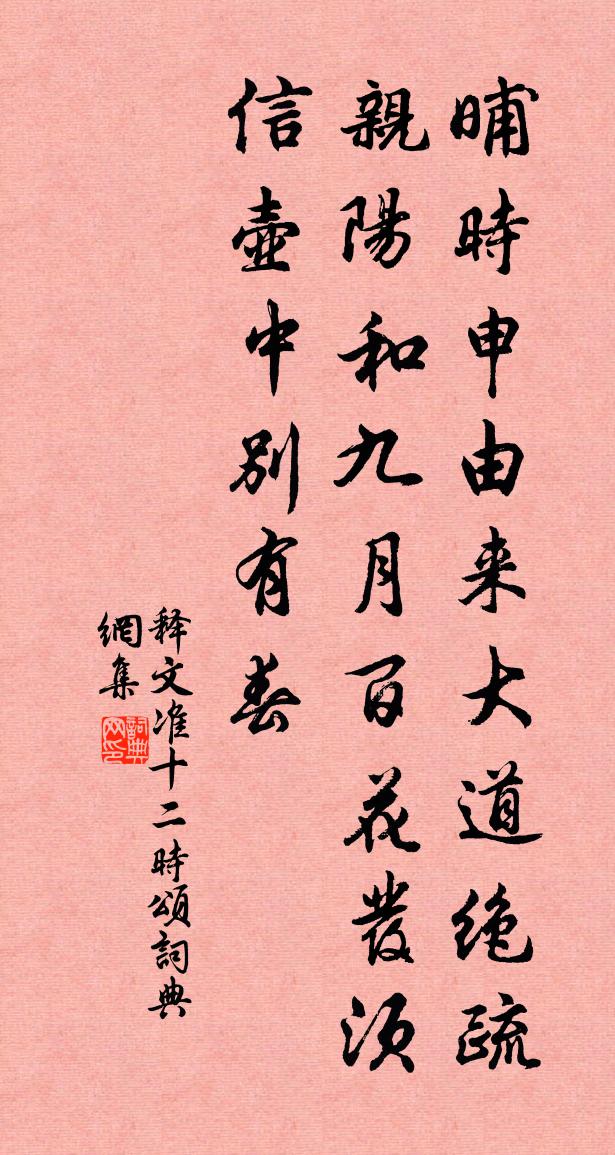 晡時申由来大道绝疏
親陽和九月百花發须
信壺中别有春
释文准十二時頌詞典
網集
詞典网印